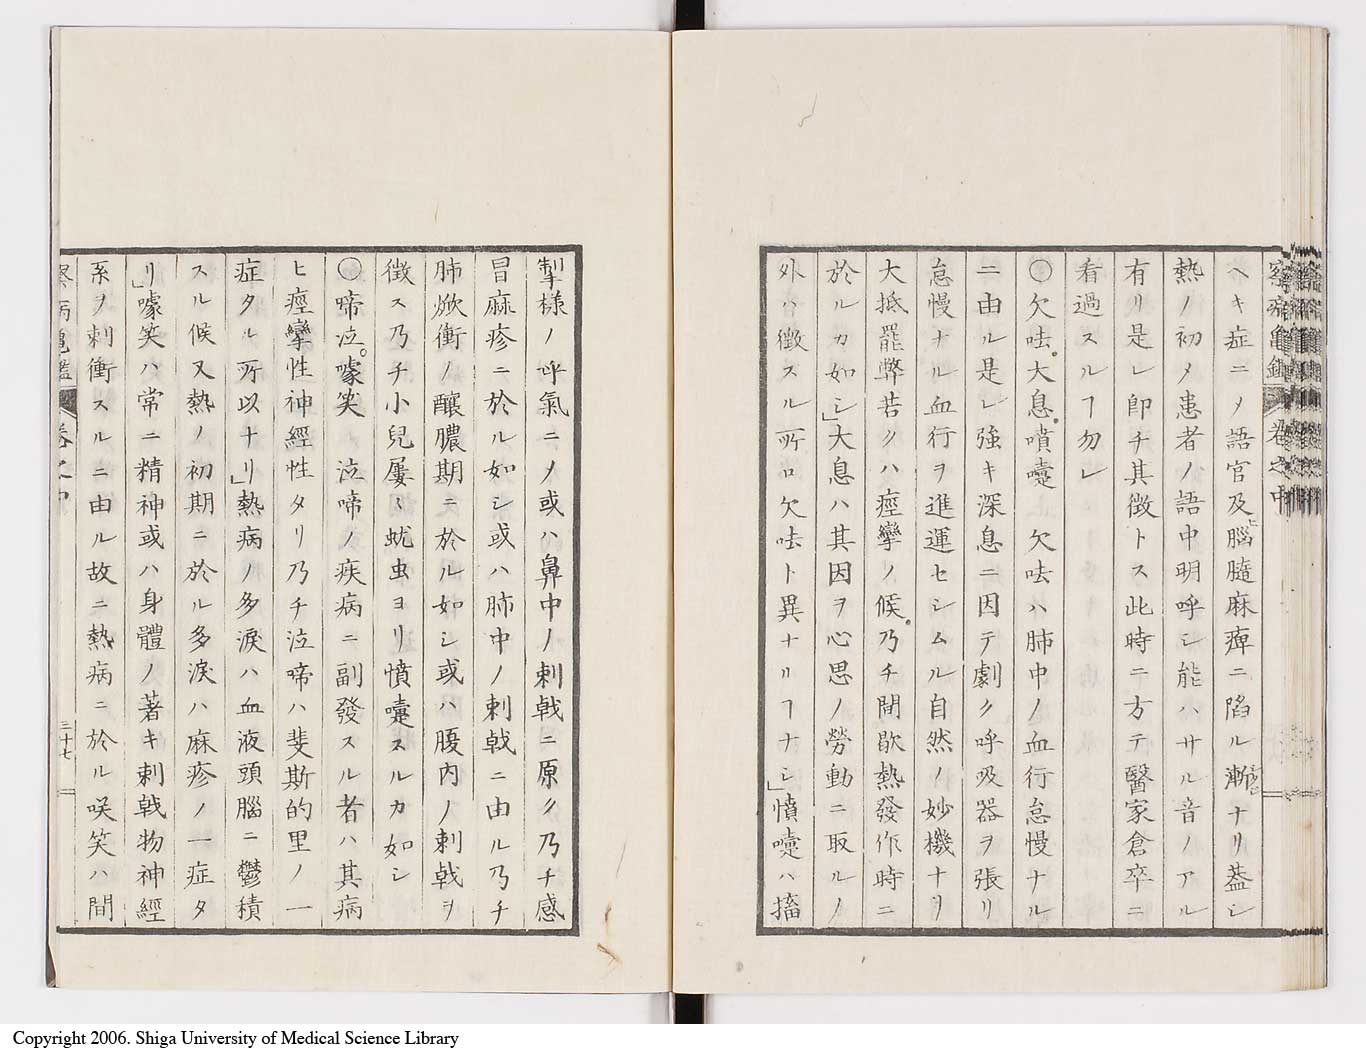 察病亀鑑 卷之中
ヘキ症ニノ語官及上腦髓麻痺ニ陷ル漸ナリ蓋シ
熱ノ初メ患者ノ語中明呼シ能ハサル音ノアル
有リ是レ卽チ其徴トス此時ニ方テ醫家倉卒ニ
看過スルヿ勿レ
〇欠呿大息噴嚔 欠呿ハ肺中ノ血行怠慢ナル
ニ由ル是レ強キ深息ニ因テ劇ク呼吸器ヲ張リ
怠慢ナル血行ヲ進運セシムル自然ノ妙機ナリ
大抵罷弊苦クハ痙攣ノ候乃チ間歇熱發作時ニ
於ルカ如シ」大息ハ其因ヲ心思ノ勞動ニ取ルノ
外ハ徴スル所ロ欠呿ト異ナルヿナシ」噴嚔ハ搐
掣様ノ呼氣ニノ或ハ鼻中ノ刺戟ニ原ク乃チ感
冒麻疹ニ於ル如シ或ハ肺中ノ刺戟ニ由ル乃チ
肺焮衝ノ釀膿期ニ於ル如シ或ハ腹内ノ刺戟ヲ
徴ス乃チ小兒屢〻蚘虫ヨリ噴嚔スルカ如シ
〇啼泣噱笑 泣啼ノ疾病ニ副發スル者ハ其病
ヒ痙攣性神經性タリ乃チ泣啼ハ斐斯的里ノ一
症タル所以ナリ」熱病ノ多淚ハ血液頭腦ニ鬱積
スル候又熱ノ初期ニ於ル多淚ハ麻疹ノ一症タ
リ」噱笑ハ常ニ精神或ハ身體ノ著キ刺戟物神經
系ノ刺衝スルニ由ル故ニ熱病ニ於ル咲笑ハ間
察病亀鑑 卷之中 三十七
Copyright 2006. Shiga University of Medical Science Library